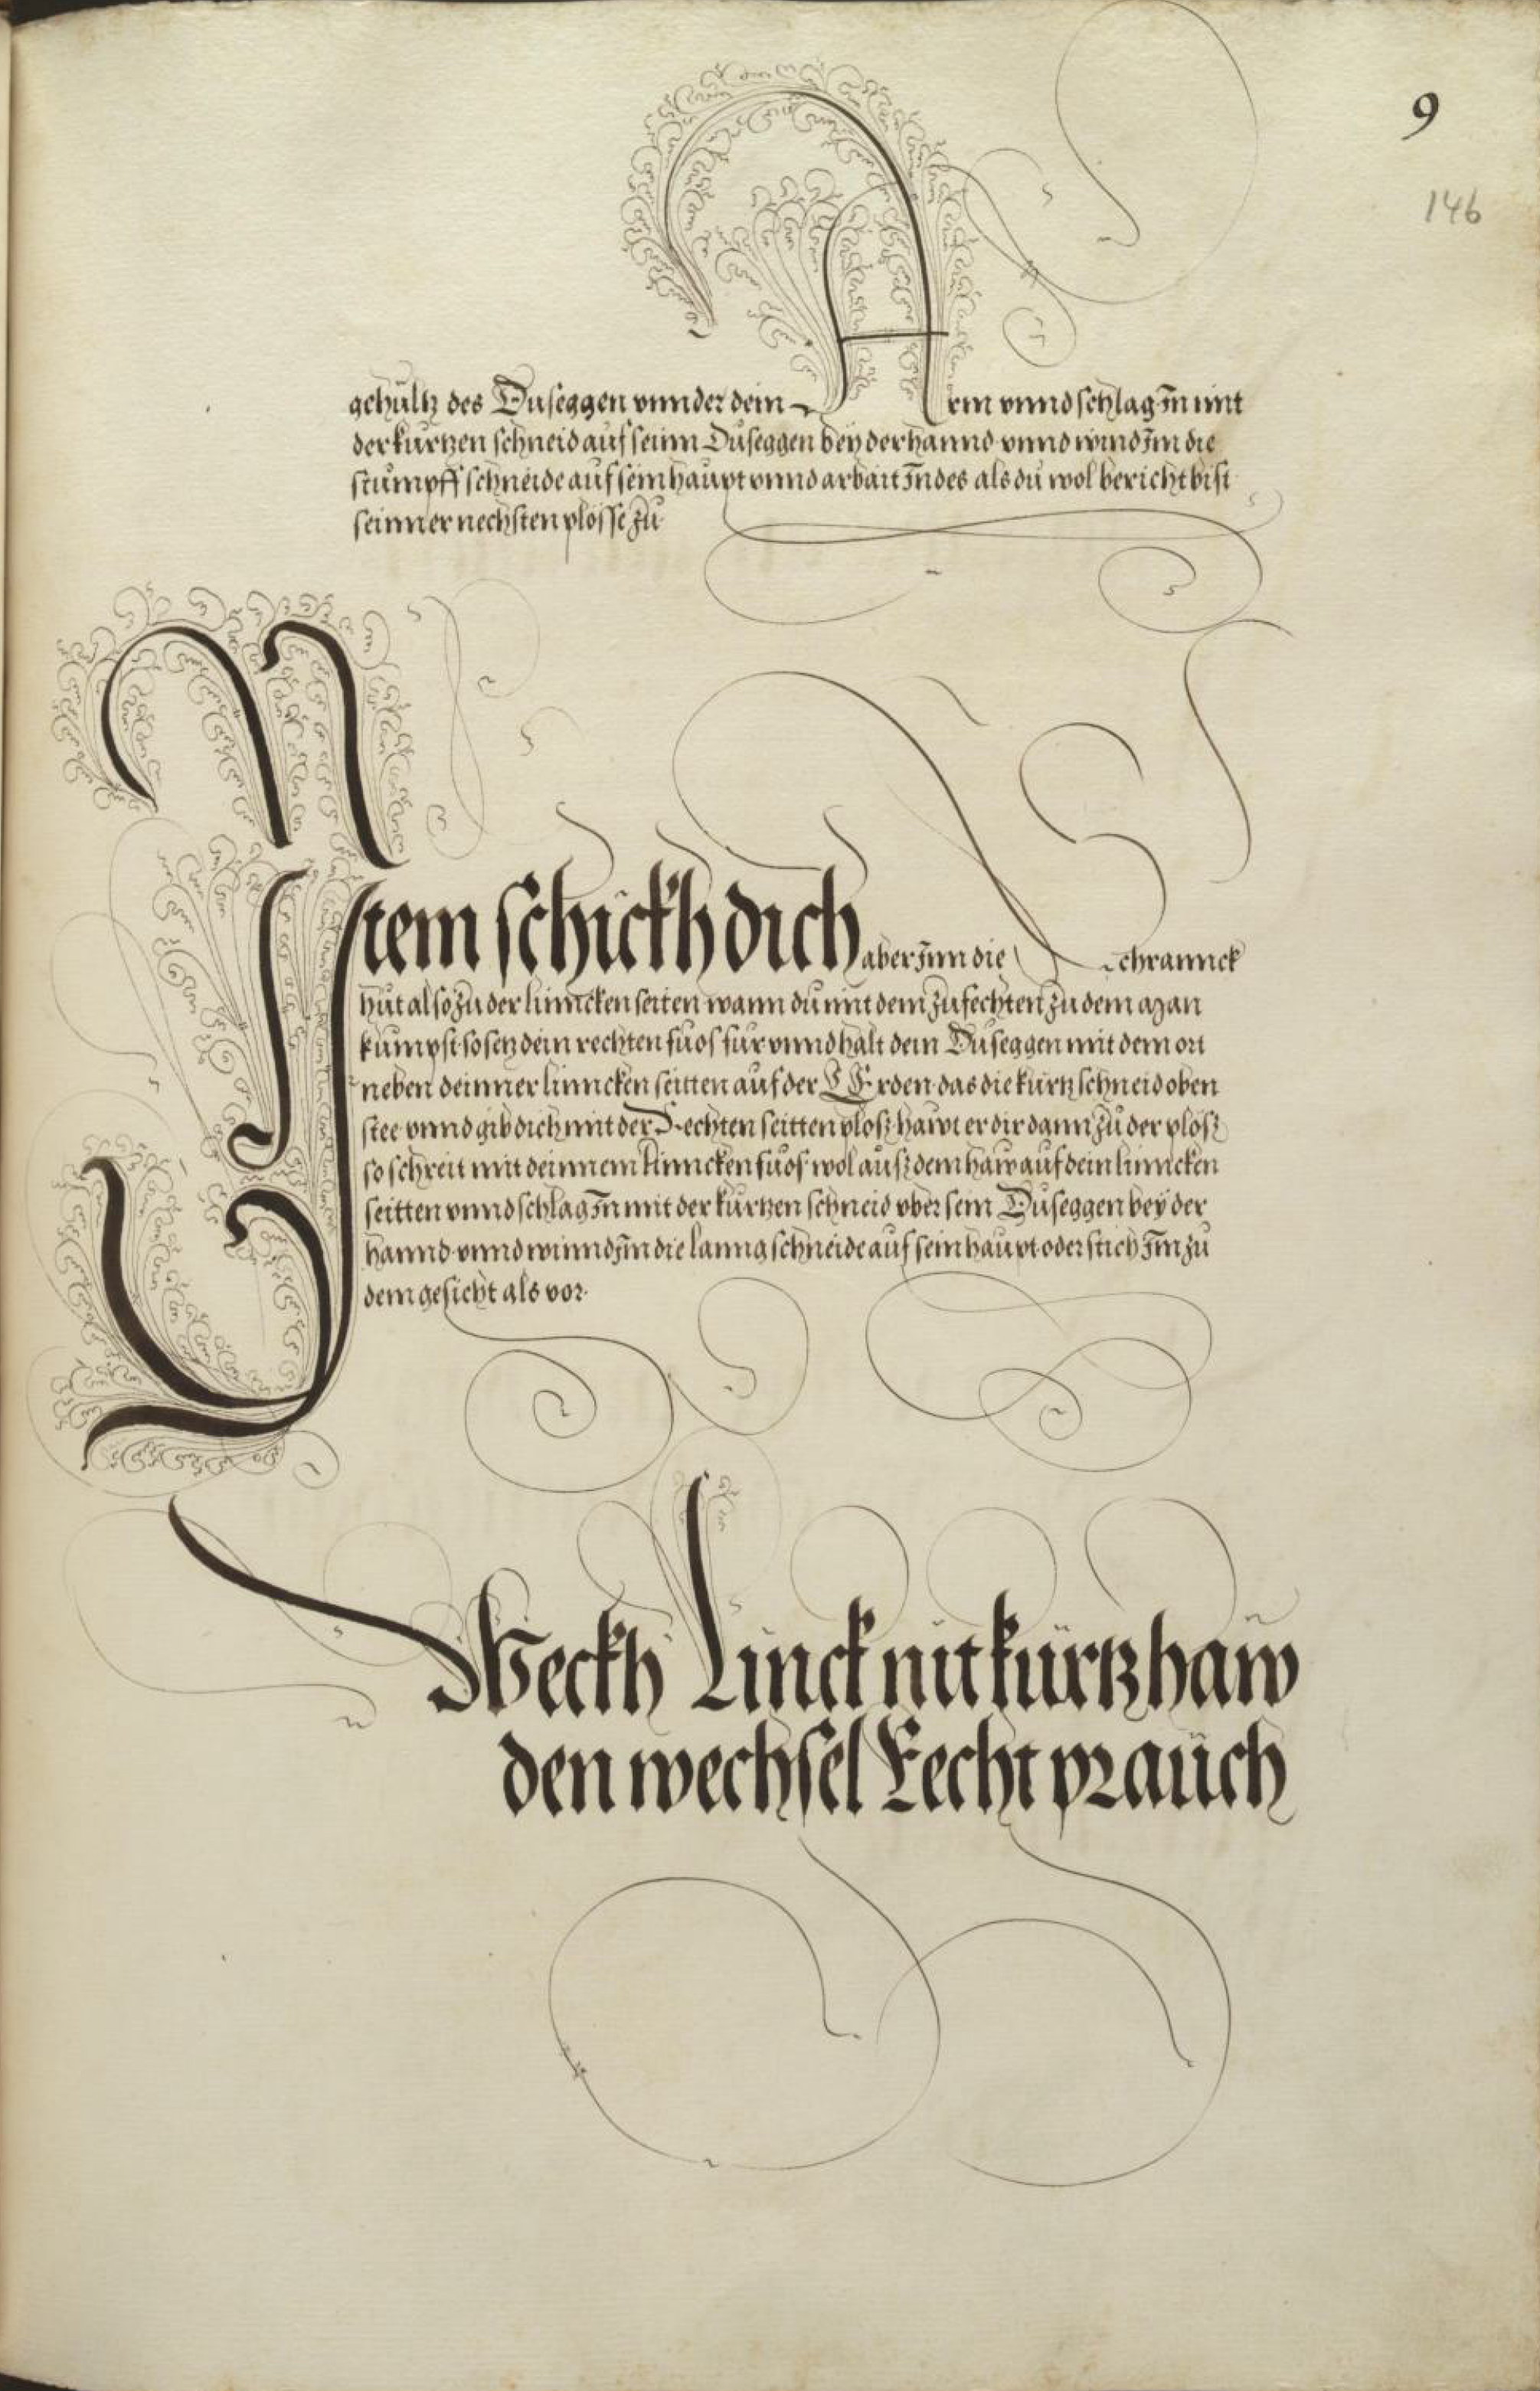 9
146
gehültz des Duseggen vnnder dein Arm vnnd schlag Im mit
der kurtzen schneid auf seinn Duseggen bey der hannd vnnd wind Im die
stumpff schneide auf sein haupt vnnd arbait Indes als du wol bericht bist
seinner nechsten plosse zu
Item schickh dich aber Inn die Schranck
hut also zu der linncken seiten wann du mit dem zufechten zu dem man
kumpst so setz dein rechten fuos fur vnnd halt dein Duseggen mit dem ort
neben deinner linncken seitten auf der Erden das die kurtz schneid oben
stee vnnd gib dich mit der Rechten seitten plosz hawt er dir dann zu der plosz
so schreit mit deinnem linncken fuos wol ausz dem haw auf dein linncken
seitten vnnd schlag In mit der kurtzen schneid vber sein Duseggen bey der
hannd vnnd winnd Im die lanng schneide auf sein haupt oder stich Im zu
dem gesicht als vor
Weckh Linck nit kürtz haw
den wechsel Fecht prauch